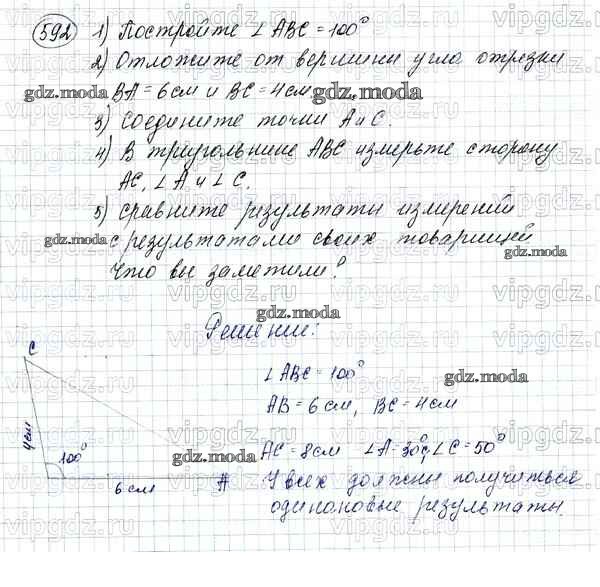 592 1) Постройте ∠ ABC = 100°
2) Отложите от вершины угла отрезки
BA = 6 см и BC = 4 см.
3) Соедините точки A и C.
4) В треугольнике ABC измерьте сторону
AC, ∠ A и ∠ C.
5) сравните результаты измерений
с результатами своих товарищей
Что вы заметили?
Решение:
∠ ABC = 100°
AB = 6 см, BC = 4 см
AC = 8 см ∠A = 30°; ∠C = 50°
У всех должны получиться
одинаковые результаты.
C
4 см
100°
6 см
A
gdz.moda
gdz.moda
gdz.moda
gdz.moda
gdz.moda
gdz.moda
gdz.moda
gdz.moda
vipgdz.ru